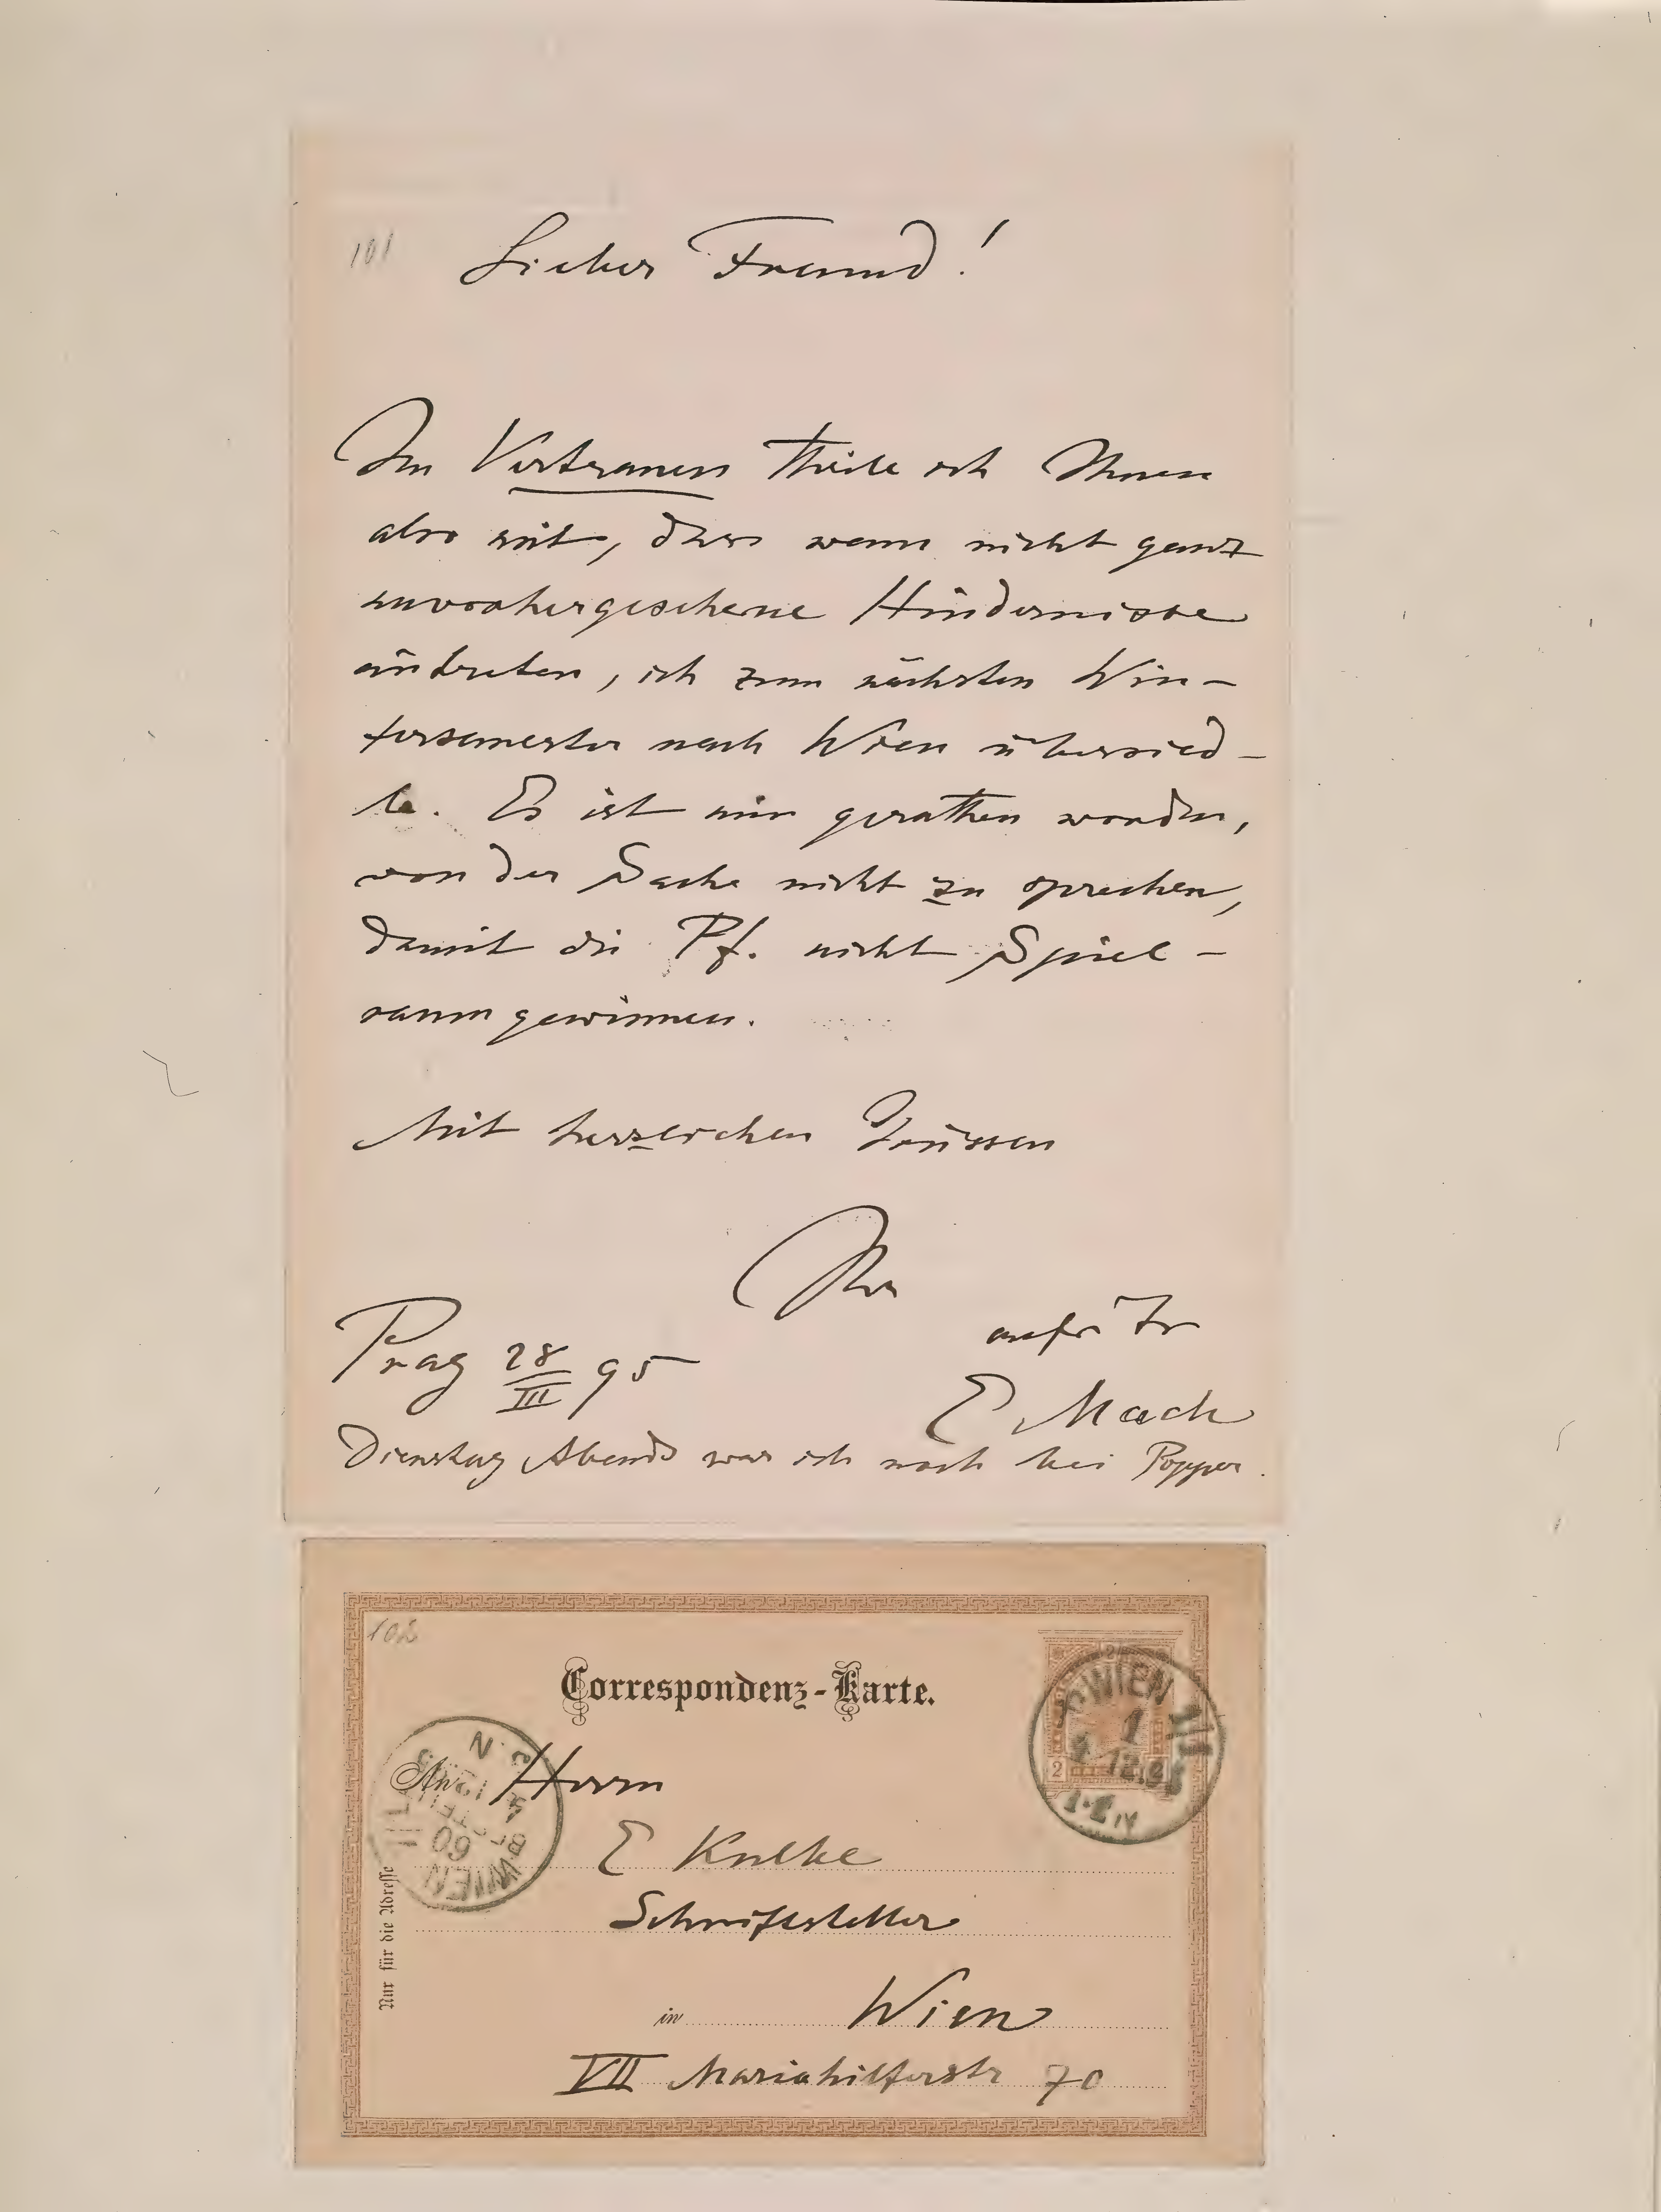 101
Lieber Freund!
Im Vertrauen theile ich Ihnen
also mit, dass wenn nicht ganz
unvorhergesehene Hindernisse
eintreten, ich zum nächsten Win-
tersemester nach Wien übersied-
le. Es ist mir gerathen worden,
von der Sache nicht zu sprechen,
damit die Pf. nicht Spiel-
raum gewinnen.
Mit herzlichen Grüssen
Ihr
Prag 28/III 95
E Mach
Dienstag Abends war ich noch bei Popper.
102
Correspondenz-Karte.
WIEN 1/1
1
12.95
2
An Herrn
WIEN
60
E Kulke
Schriftsteller
Nur für die Adresse
in Wien
VII Mariahilferstr 70